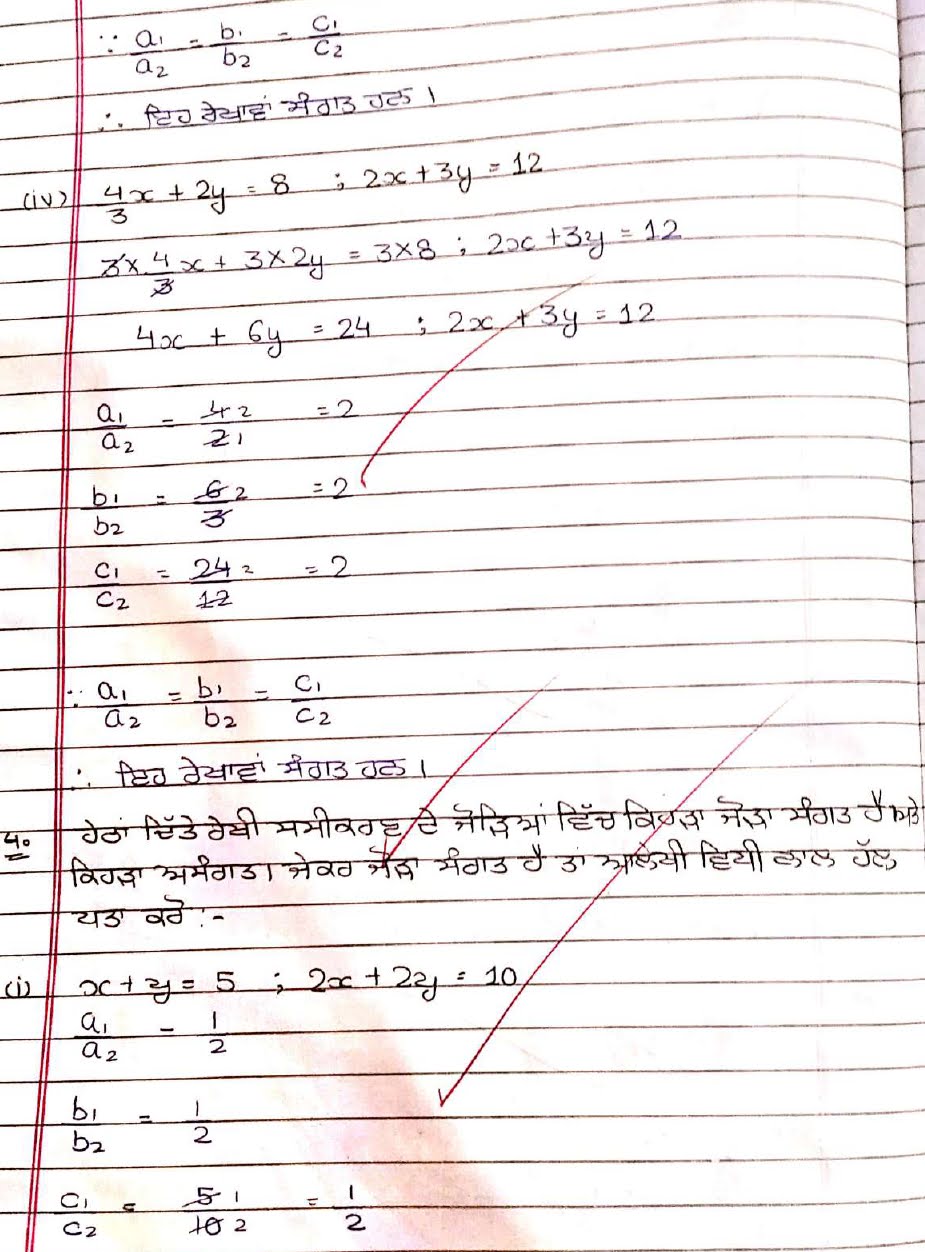 ∵ a₁/a₂ = b₁/b₂ = c₁/c₂
∴ ਇਹ ਰੇਖਾਵਾਂ ਸੰਗਤ ਹਨ।
(iv) 4/3x + 2y = 8 ; 2x + 3y = 12
3 × 4/3x + 3 × 2y = 3 × 8 ; 2x + 3y = 12
4x + 6y = 24 ; 2x + 3y = 12
a₁/a₂ = 4 2/2 1 = 2
b₁/b₂ = 6 2/3 = 2
c₁/c₂ = 24 2/12 = 2
∵ a₁/a₂ = b₁/b₂ = c₁/c₂
∴ ਇਹ ਰੇਖਾਵਾਂ ਸੰਗਤ ਹਨ।
ਪ੍ਰ੦ ਹੇਠਾਂ ਦਿੱਤੇ ਰੇਖੀ ਸਮੀਕਰਣ ਦੇ ਜੋੜਿਆਂ ਵਿੱਚ ਕਿਹੜਾ ਜੋੜਾ ਸੰਗਤ ਹੈ ਅਤੇ
ਕਿਹੜਾ ਅਸੰਗਤ। ਜੇਕਰ ਜੋੜਾ ਸੰਗਤ ਹੈ ਤਾਂ ਆਲੇਖੀ ਵਿਧੀ ਨਾਲ ਹੱਲ
ਪਤਾ ਕਰੋ :-
(i) x + y = 5 ; 2x + 2y = 10
a₁/a₂ = 1/2
b₁/b₂ = 1/2
c₁/c₂ = 5 1/10 2 = 1/2